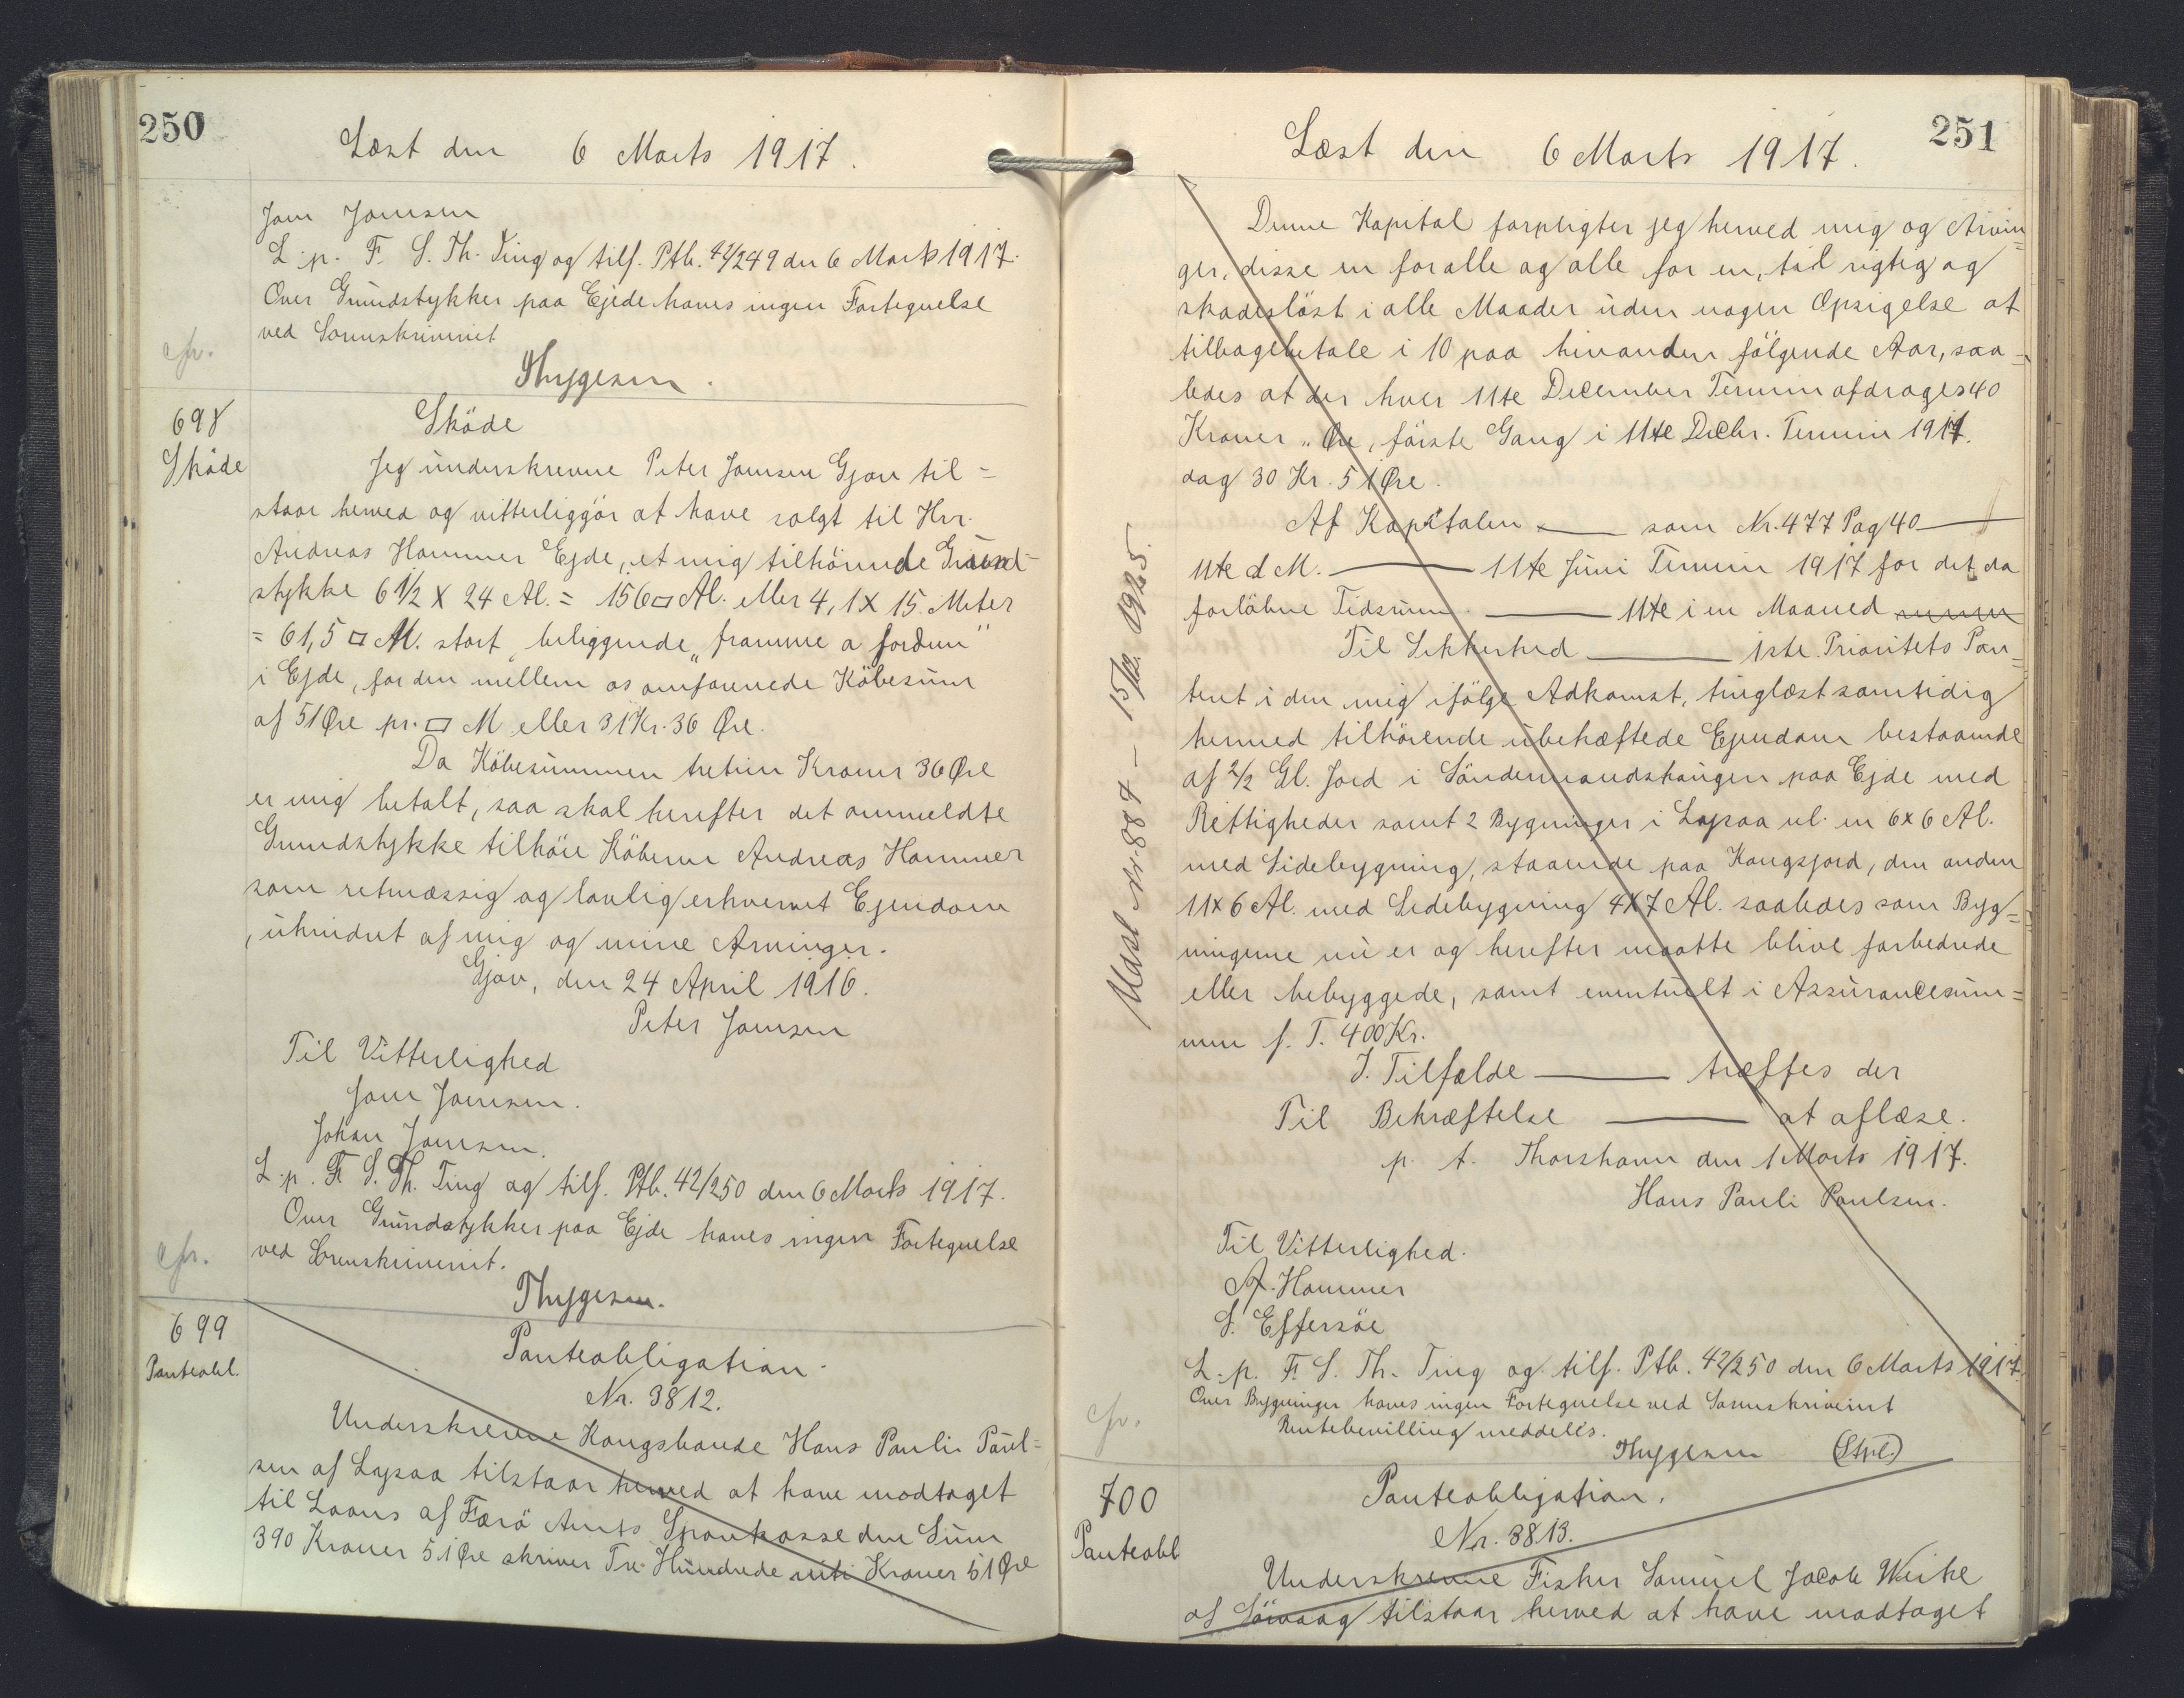 250
Læst den 6 Marts 1917.
Joen Joensen
L. p. F. S. Th. Ting og tilf. Ptb. 42/249 den 6 Marts 1917.
Over Grundstykker paa Ejde haves ingen Fortegnelse
ved Sorenskriveriet
cfr.
Thygesen.
698
Sköde
Sköde
Jeg underskrevne Peter Joensen Gjov til=
staar herved og vitterliggör at have solgt til Hrr.
Andreas Hammer Ejde, et mig tilhörende Grund=
stykke 6 1/2 X 24 Al. = 156 □ Al. eller 4,1 X 15. Meter
= 61,5 □ M. stort, beliggende „framme a fordum"
i Ejde, for den mellem os omforenede Köbesum
af 51 Øre pr. □ M eller 31 Kr. 36 Øre.
Da Köbesummen tretien Kroner 36 Øre
er mig betalt, saa skal herefter det ommeldte
Grundstykke tilhöre Köberen Andreas Hammer
som retmæssig og lovlig erhvervet Ejendom
, uhindret af mig og mine Arvinger.
Gjov, den 24 April 1916.
Peter Joensen
Til Vitterlighed
Joen Joensen.
Johan Joensen.
L. p. F. S. Th. Ting og tilf. Ptb. 42/250 den 6 Marts 1917.
Over Grundstykker paa Ejde haves ingen Fortegnelse
ved Sorenskriveriet.
cfr.
Thygesen.
699
Panteobl.
Panteobligation.
Nr. 3812.
Underskrevne Kongsbonde Hans Pauli Paul=
sen af Lopraa tilstaar herved at have modtaget
til Laans af Færö Amts Sparekasse den Sum
390 Kroner 51 Øre skriver Tre Hundrede niti Kroner 51 Øre
251
Læst den 6 Marts 1917.
Denne Kapital forpligter jeg herved mig og Arvin=
ger, disse en for alle og alle for en, til rigtig og
skadeslöst i alle Maader uden nogen Opsigelse at
tilbagebetale i 10 paa hinanden fölgende Aar, saa=
ledes at der hver 11te December Termin afdrages 40
Kroner „ Øre, förste Gang i 11te Decbr. Termin 1917.
dog 30 Kr. 51 Øre.
Af Kapitalen — som Nr. 477 Pag 40 —
11te d M. — 11te Juni Termin 1917 for det da
forlöbne Tidsrum. — 11te i en Maaned
Til Sikkerhed — 1ste Prioritets Pan=
teret i den mig ifölge Adkomst, tinglæst samtidig
hermed tilhörende ubehæftede Ejendom bestaaende
af 2/2 Gl. Jord i Söndermandshaugen paa Ejde med
Rettigheder samt 2 Bygninger i Lopraa nl. en 6x6 Al.
med Sidebygning, staaende paa Kongsjord, den anden
11x6 Al. med Sidebygning 4X7 Al. saaledes som Byg=
ningerne nu er og herefter maatte blive forbedrede
eller bebyggede, samt eventuelt i Assurancesum=
men f. T. 400 Kr.
I. Tilfælde — træffes der
Til Bekræftelse — at aflæse.
p. t. Thorshavn den 1 Marts 1917.
Hans Pauli Poulsen.
Til Vitterlighed.
A. Hammer
S. Effersöe
L. p. F. S. Th. Ting og tilf. Ptb. 42/250 den 6 Marts 1917.
Over Bygninger haves ingen Fortegnelse ved Sorenskriveriet
cfr.
Rentebevilling meddeles.
Thygesen (Stpl.)
Udsl Nr. 887 — 15/12 1925.
700
Panteobl
Panteobligation.
Nr. 3813.
Underskrevne Fisker Samuel Jacob Weihe
af Sörvaag tilstaar herved at have modtaget